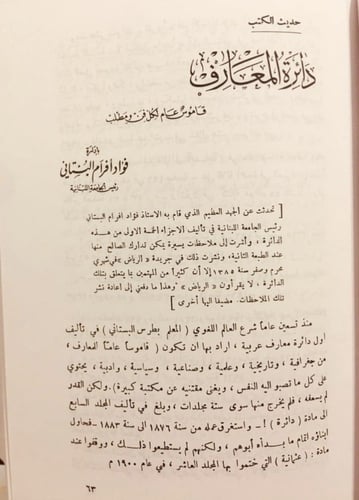 حديث الكتب
دائرة المعارف
قاموس عام لكل فن ومطلب
بإدارة
فؤاد افرام البستاني
رئيس الجامعة اللبنانية
[ تحدثت عن الجهد العظيم الذي قام به الاستاذ فؤاد افرام البستاني
رئيس الجامعة اللبنانية في تأليف الاجزاء الخمسة الاول من هذه
الدائرة ، وأشرت إلى ملاحظات يسيرة يمكن تدارك الصالح منها
عند الطبعة الثانية، ونشرت ذلك في جريدة « الرياض » في شهري
محرم وصفر سنة ١٣٨٥ إلا أن كثيراً من المهتمين بما يتعلق بتلك
الدائرة ، لا يقرأون « الرياض » وهذا ما دفعني إلى إعادة نشر
تلك الملاحظات . مضيفا اليها أخرى ]
منذ تسعين عاماً شرع العالم اللغوي ( المعلم بطرس البستاني ) في تأليف
اول دائرة معارف عربية ، اراد بها ان تكون ( قاموساً عامّاً للمعارف ،
من جغرافية ، وتاريخية ، وعلمية ، وصناعية ، وسياسية ، وادبية ، يحتوي
على كل ما تصبو اليه النفس ، ويغني مقتنيه عن مكتبة كبيرة) . ولكن القدر
لم يسعفه ، فلم يخرج منها سوى ستة مجلدات ، وبلغ في تأليف المجلد السابع
إلى مادة ( دائرة ) !ـ واستغرق عمله من سنة ١٨٧٦ الى سنة ١٨٨٣ ـ فحاول
ابناؤه اتمام ما بدأه أبوهم ، ولكنهم لم يستطيعوا ذلك ، ووقفوا عند
مادة : ( عثمانية ) التي ختموا بها المجلد العاشر ، في عام ١٩٠٠ م
٦٣